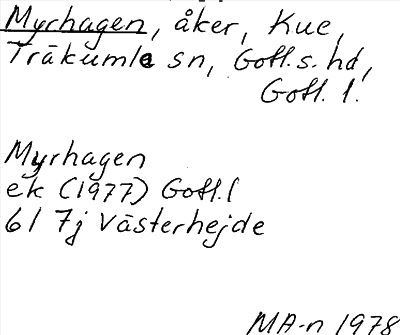 Myrhagen, åker, Kue,
Träkumle sn, Gotl.s. hd,
Gotl. l.
Myrhagen
ek (1977) Gotl. l
6I 7j Västerhejde
MA-n 1978